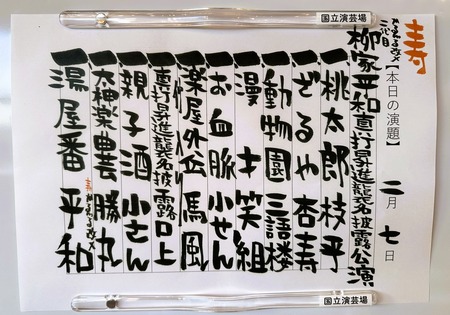 国立演芸場
寿
かゑる改メ
二代目
柳家平和真打昇進襲名披露公演
【本日の演題】
二月七日
一 桃太郎 枝平
一 ざるや 杏寿
一 動物園 三語楼
一 漫才 笑組
一 お血脈 小せん
一 楽屋外伝 馬風
一 真打昇進襲名披露口上
一 親子酒 小さん
一 太神楽曲芸 勝丸
寿 かゑる改メ
一 湯屋番 平和
国立演芸場